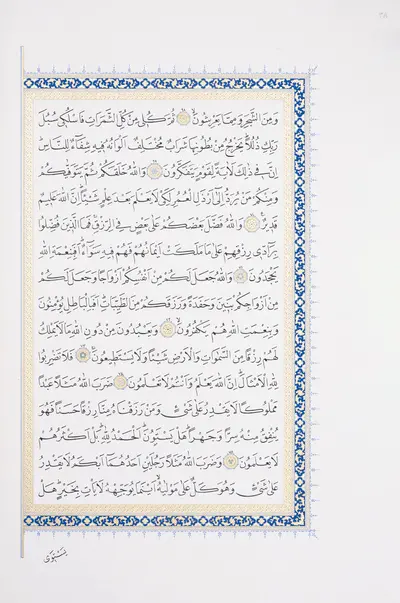 وَمِنَ الشَّجَرِ وَمِمَّا يَعْرِشُونَۙ ثُمَّ كُلِي مِنْ كُلِّ الثَّمَرَاتِ فَاسْلُكِي سُبُلَ
رَبِّكِ ذُلُلًاۜ يَخْرُجُ مِنْ بُطُونِهَا شَرَابٌ مُخْتَلِفٌ اَلْوَانُهُ فِيهِ شِفَاءٌ لِلنَّاسِۜ
اِنَّ فِي ذٰلِكَ لَاٰيَةً لِقَوْمٍ يَتَفَكَّرُونَ وَاللهُ خَلَقَكُمْ ثُمَّ يَتَوَفّٰيكُمْ
وَمِنْكُمْ مَنْ يُرَدُّ اِلٰى اَرْذَلِ الْعُمُرِ لِكَيْ لَا يَعْلَمَ بَعْدَ عِلْمٍ شَيْـًٔاۜ اِنَّ اللهَ عَلِيمٌ
قَدِيرٌ وَاللهُ فَضَّلَ بَعْضَكُمْ عَلٰى بَعْضٍ فِي الرِّزْقِۚ فَمَا الَّذِينَ فُضِّلُوا
بِرَادِّي رِزْقِهِمْ عَلٰى مَا مَلَكَتْ اَيْمَانُهُمْ فَهُمْ فِيهِ سَوَاءٌۜ اَفَبِنِعْمَةِ اللهِ
يَجْحَدُونَ وَاللهُ جَعَلَ لَكُمْ مِنْ اَنْفُسِكُمْ اَزْوَاجًا وَجَعَلَ لَكُمْ
مِنْ اَزْوَاجِكُمْ بَنِينَ وَحَفَدَةً وَرَزَقَكُمْ مِنَ الطَّيِّبَاتِۜ اَفَبِالْبَاطِلِ يُؤْمِنُونَ
وَبِنِعْمَتِ اللهِ هُمْ يَكْفُرُونَۙ وَيَعْبُدُونَ مِنْ دُونِ اللهِ مَا لَا يَمْلِكُ
لَهُمْ رِزْقًا مِنَ السَّمٰوَاتِ وَالْاَرْضِ شَيْـًٔا وَلَا يَسْتَطِيعُونَۚ فَلَا تَضْرِبُوا
لِلهِ الْاَمْثَالَۜ اِنَّ اللهَ يَعْلَمُ وَاَنْتُمْ لَا تَعْلَمُونَ ضَرَبَ اللهُ مَثَلًا عَبْدًا
مَمْلُوكًا لَا يَقْدِرُ عَلٰى شَيْءٍ وَمَنْ رَزَقْنَاهُ مِنَّا رِزْقًا حَسَنًا فَهُوَ
يُنْفِقُ مِنْهُ سِرًّا وَجَهْرًاۜ هَلْ يَسْتَوُونَۜ اَلْحَمْدُ لِلهِۜ بَلْ اَكْثَرُهُمْ
لَا يَعْلَمُونَ وَضَرَبَ اللهُ مَثَلًا رَجُلَيْنِ اَحَدُهُمَا اَبْكَمُ لَا يَقْدِرُ
عَلٰى شَيْءٍ وَهُوَ كَلٌّ عَلٰى مَوْلٰيهُۙ اَيْنَمَا يُوَجِّهْهُ لَا يَأْتِ بِخَيْرٍۜ هَلْ
يَسْتَوِي